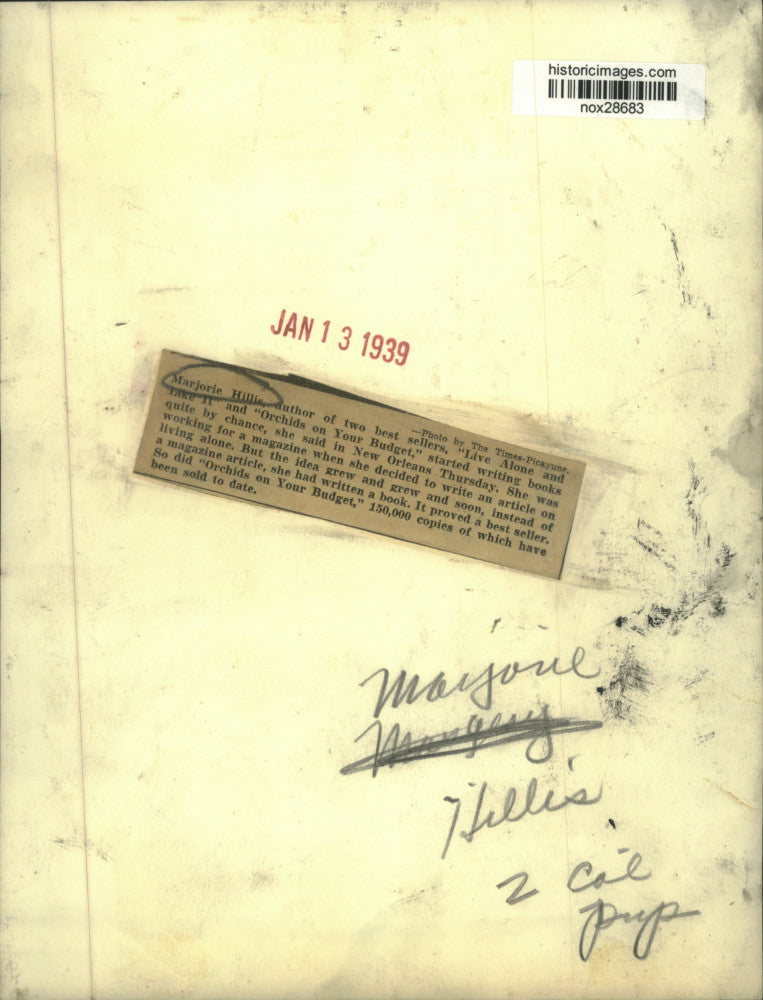 historicimages.com
nox28683
JAN 13 1939
—Photo by The Times-Picayune.
Marjorie Hillis, author of two best sellers, "Live Alone and
Like It" and "Orchids on Your Budget," started writing books
quite by chance, she said in New Orleans Thursday. She was
working for a magazine when she decided to write an article on
living alone. But the idea grew and grew and soon, instead of
a magazine article, she had written a book. It proved a best seller.
So did "Orchids on Your Budget," 150,000 copies of which have
been sold to date.
Marjorie
Hillis
2 Col